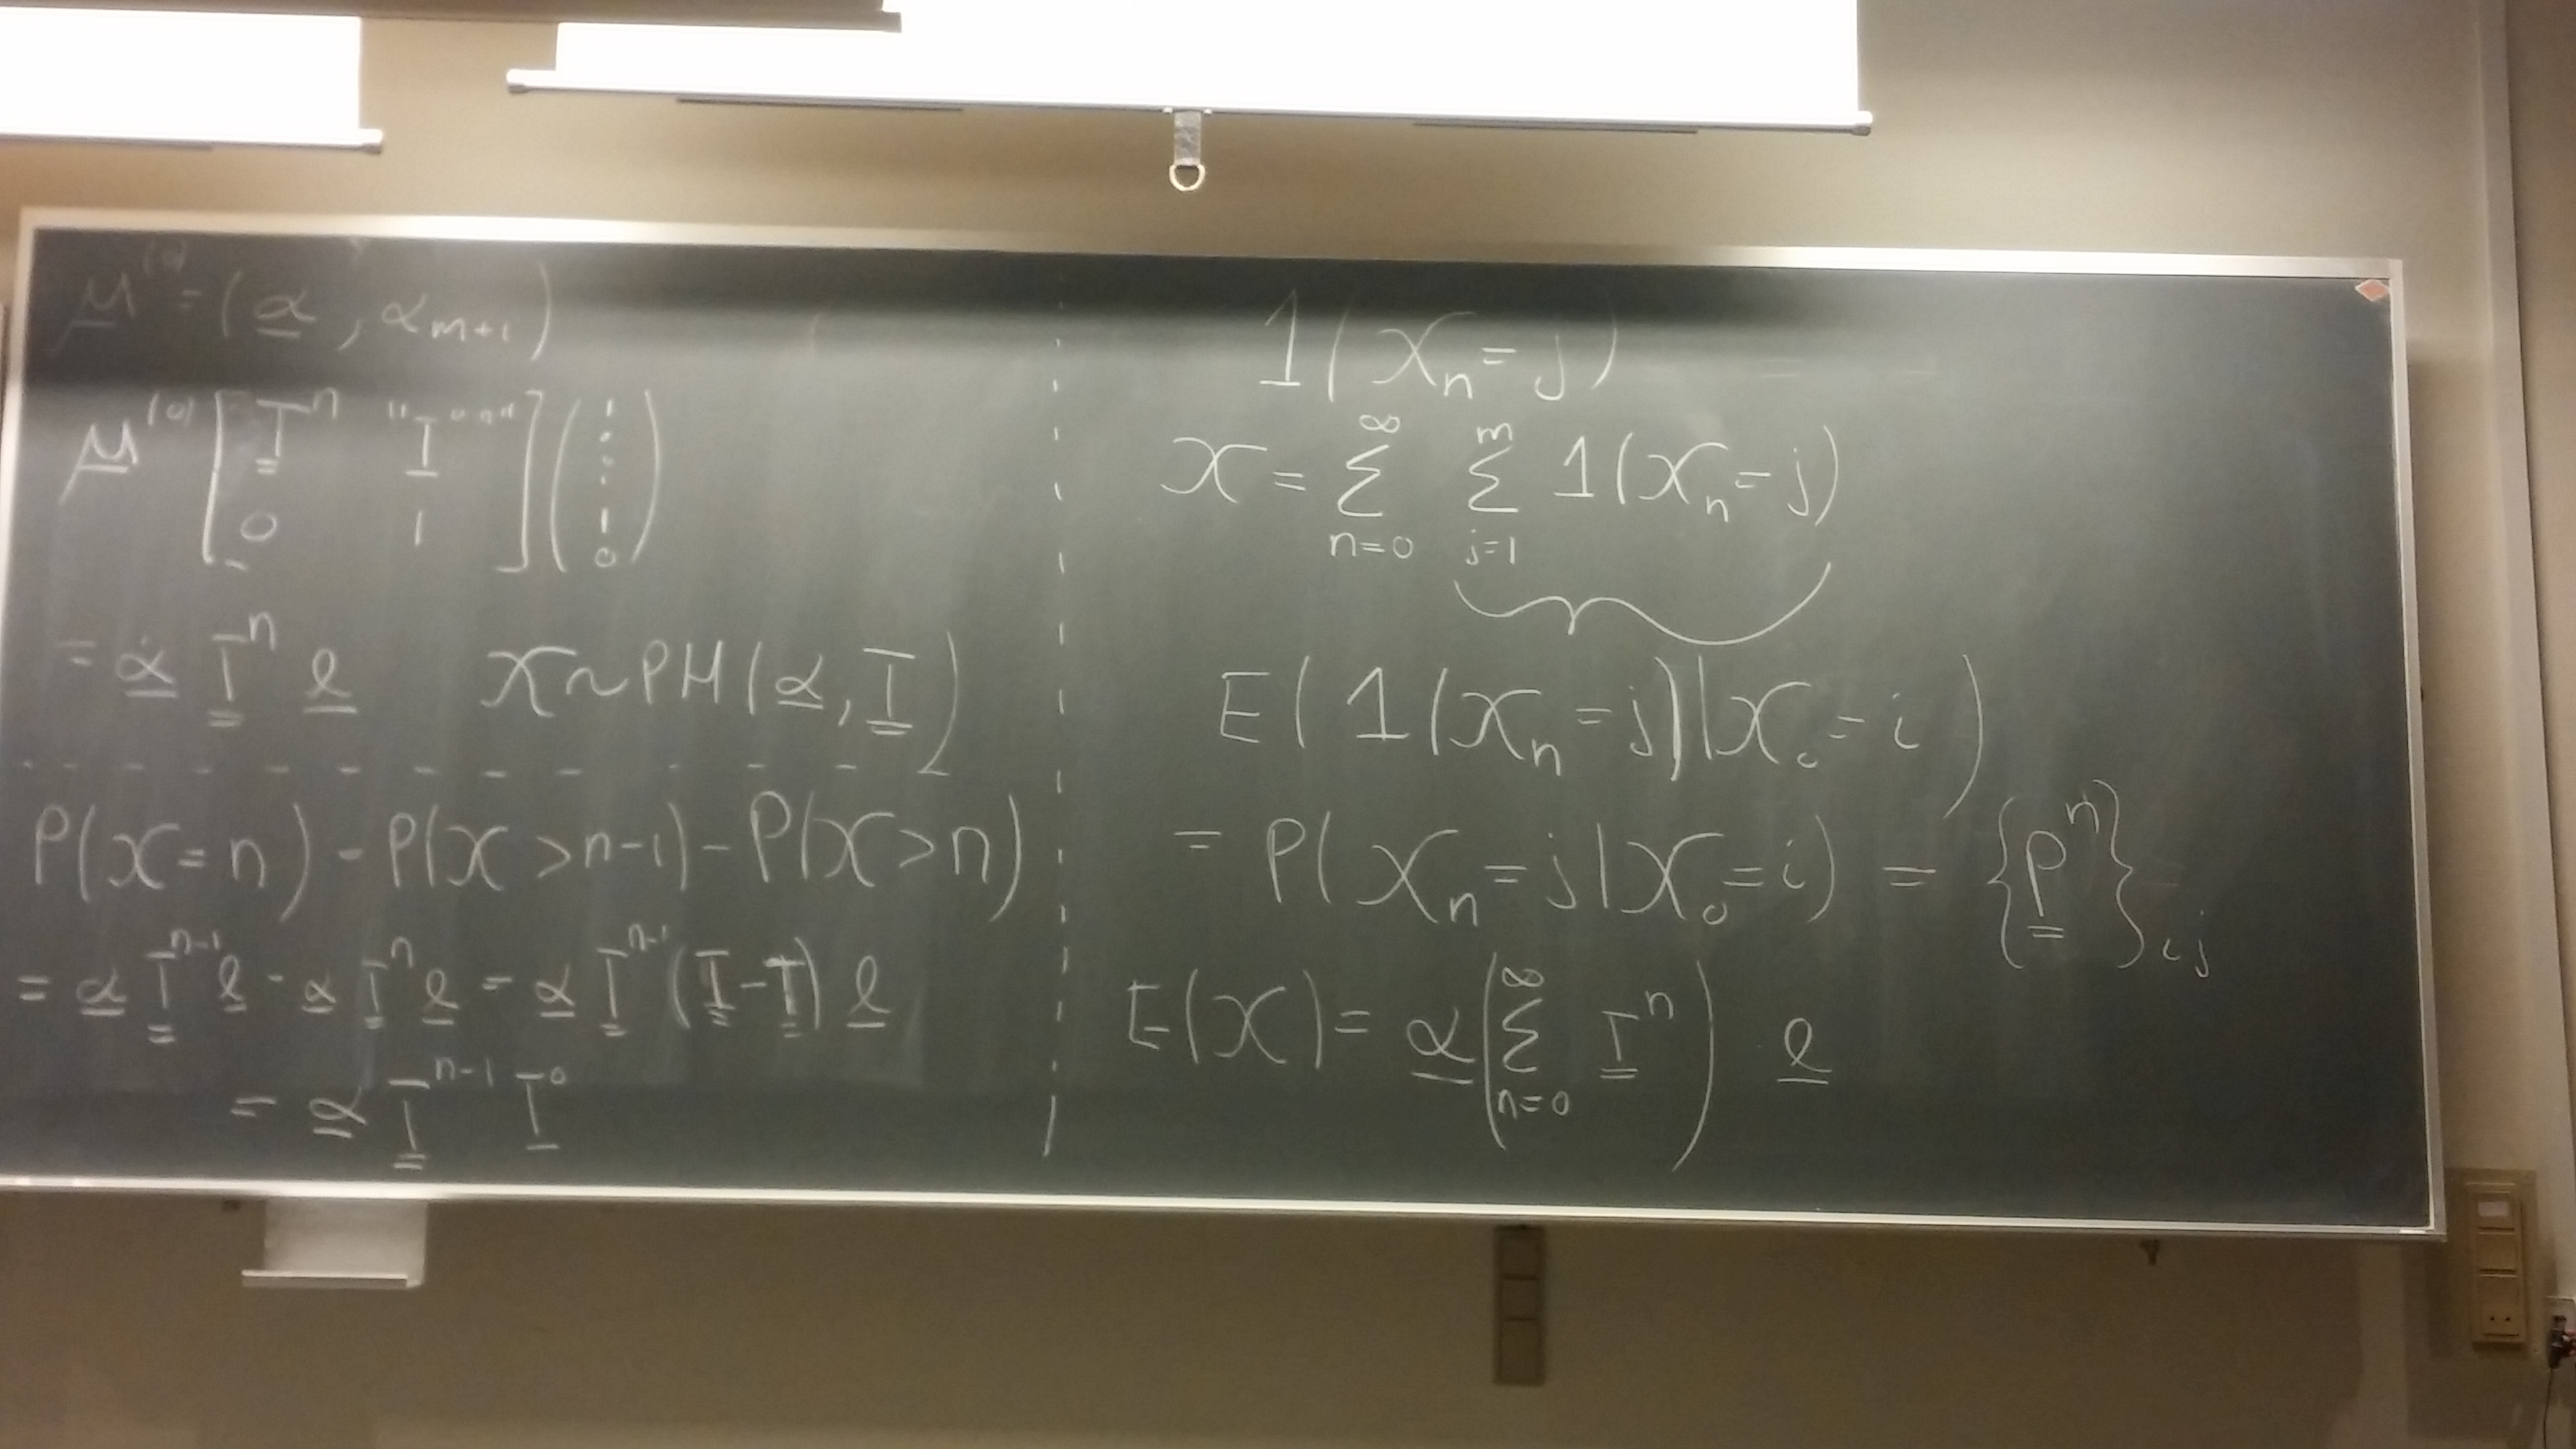 μ̲⁽⁰⁾ = (α̲, α_{m+1})
μ̲⁽⁰⁾ [ T̳ⁿ "T̲⁰ⁿ" ; 0 1 ] ( 1 ⋮ 1 0 )
= α̲ T̳ⁿ e̲ X ~ PH(α̲, T̳)
P(X = n) = P(X > n-1) - P(X > n)
= α̲ T̳ⁿ⁻¹ e̲ - α̲ T̳ⁿ e̲ = α̲ T̳ⁿ⁻¹ (I̳ - T̳) e̲
= α̲ T̳ⁿ⁻¹ T̲⁰
1(Xₙ = j)
X = ∑_{n=0}^{∞} ∑_{j=1}^{m} 1(Xₙ = j)
E(1(Xₙ = j) | X₀ = i)
= P(Xₙ = j | X₀ = i) = {P̳ⁿ}_{ij}
E(X) = α̲ (∑_{n=0}^{∞} T̳ⁿ) e̲